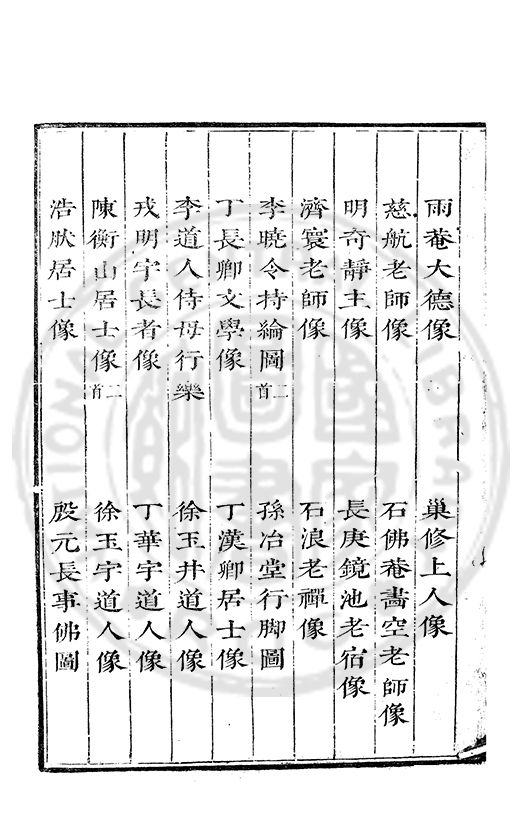 雨菴大德像 巢修上人像
慈航老師像 石佛菴晝空老師像
明奇靜主像 長庚鏡池老宿像
濟寰老師像 石浪老禪像
李曉令持綸圖二首 孫冶堂行脚圖
丁長卿文學像 丁漢卿居士像
李道人侍母行樂 徐玉井道人像
戎明宇長者像 丁華宇道人像
陳衡山居士像二首 徐玉宇道人像
浩肰居士像 殷元長事佛圖